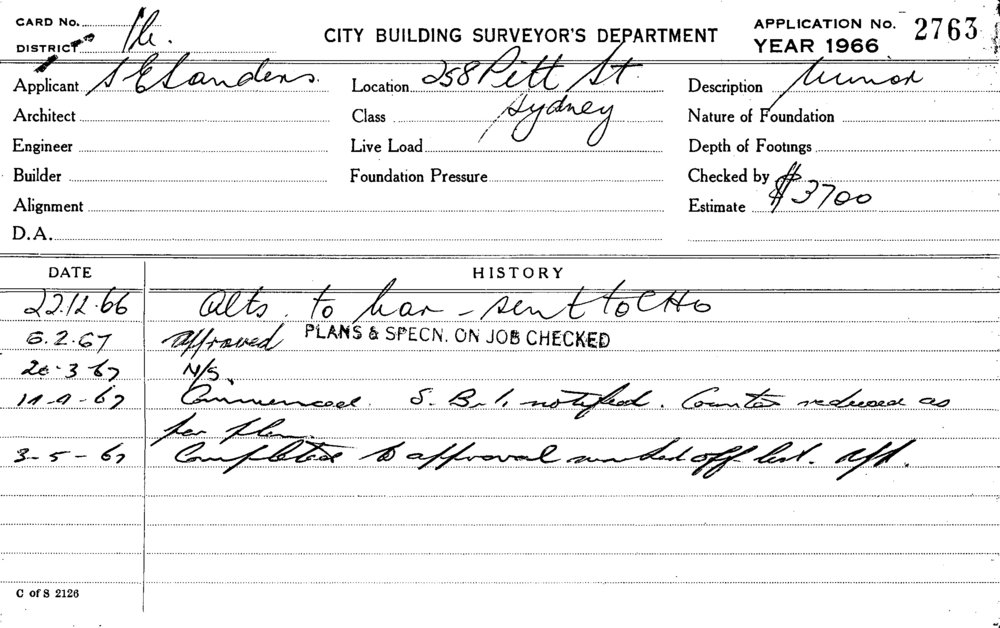 CARD No.
DISTRICT
CITY BUILDING SURVEYOR'S DEPARTMENT
APPLICATION No. 2763
YEAR 1966
Applicant S E Sanders.
Location 258 Pitt St.
Description Minor
Architect
Class Sydney
Nature of Foundation
Engineer
Live Load
Depth of Footings
Builder
Foundation Pressure
Checked by
Alignment
Estimate $3700
D.A.
DATE HISTORY
22.12.66 Alts. to bar - sent to CHO
6.2.67 approved PLANS & SPECN. ON JOB CHECKED
20-3-67 N/S.
11-4-67 Commenced. S.B.I. notified. Counter reduced as
per plan.
3-5-67 Completed to approval marked off list.
C of S 2126